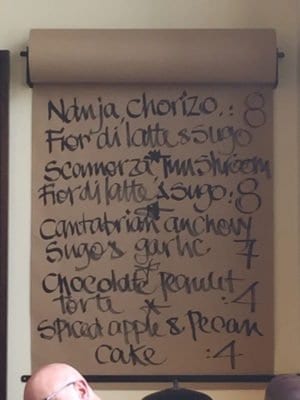 Nduja, chorizo. : 8
Fior di latte & sugo
Scamorza, mushroom
Fior di latte & sugo : 8
Cantabrian anchovy
Sugo & garlic 7
Chocolate peanut
torte : 4
Spiced apple & Pecan
cake : 4